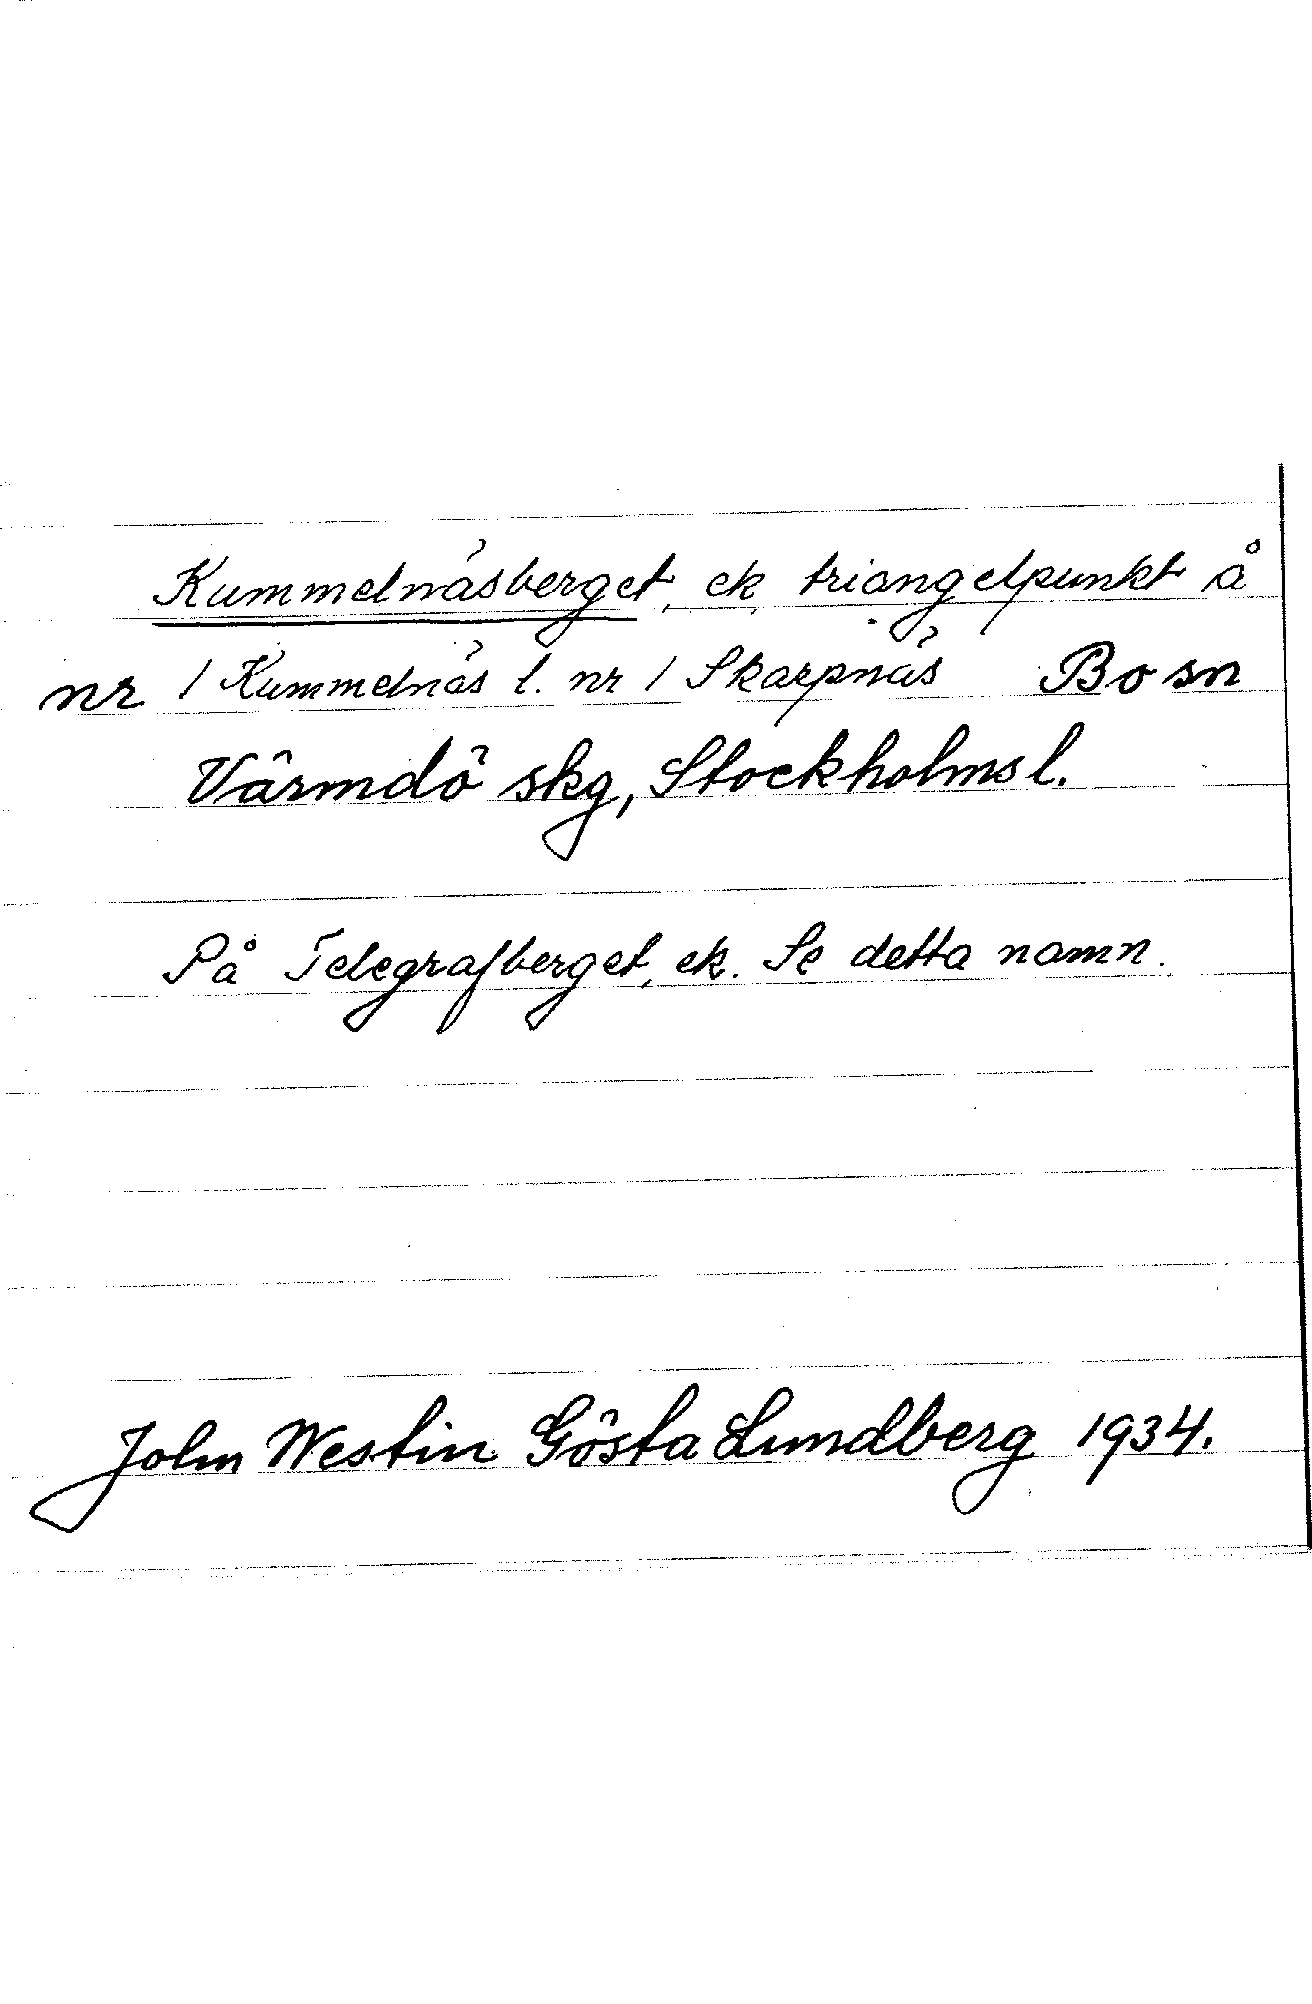 Kummelnäsberget, ek, triangelpunkt å
nr 1 Kummelnäs l. nr 1 Skarpnäs Bo sn
Värmdö skg, Stockholms l.
På Telegrafberget, ek. Se detta namn.
John Westin Gösta Lundberg 1934.